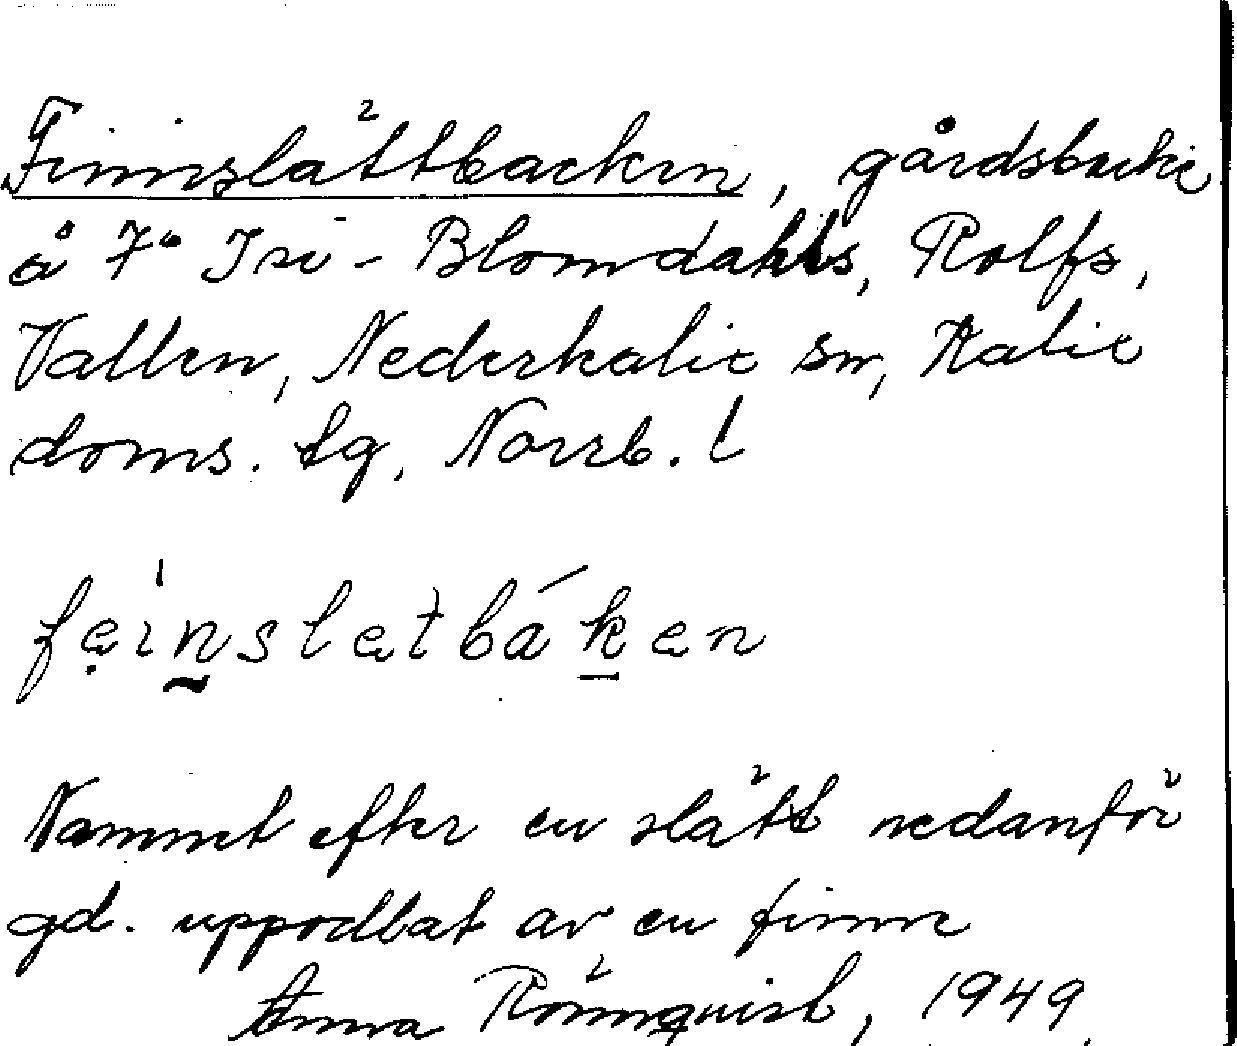 Finnslättbacken, gårdsbacke
å 7° Isi - Blomdahls, Rolfs,
Vallen, Nederkalix sn, Kalix
doms. tg, Norrb. l
feinsletbáken
Namnet efter en slätt nedanför
gd. uppodlat av en finne
Anna Rönnquist, 1949